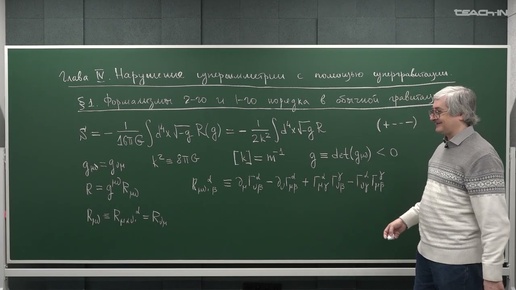 TEACH-IN
Глава IV. Нарушение суперсимметрии с помощью супергравитации
§1. Формализмы 2-го и 1-го порядка в обычной гравитац
S = -1/16πG ∫d⁴x √-g R(g) = -1/2k² ∫d⁴x √-g R (+ - - -)
g_μν = g_νμ k² ≡ 8πG [k] = m⁻¹ g ≡ det(g_μν) < 0
R = g^μν R_μν R_μν,^α_β ≡ ∂_μ Γ^α_νβ - ∂_ν Γ^α_μβ + Γ^α_μγ Γ^γ_νβ - Γ^α_νγ Γ^γ_μβ
R_μν ≡ R_μα,ν^α = R_νμ